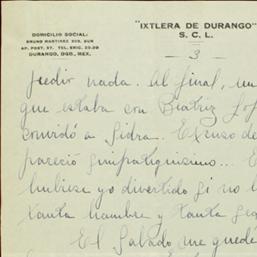 "IXTLERA DE DURANGO"
S. C. L.
DOMICILIO SOCIAL:
BRUNO MARTINEZ 205, SUR
AP. POST. 57. TEL. ERIC. 20-29
DURANGO, DGO., MEX.
3
pedir nada. Al final, un
que estaba con Beatriz
convidó a sidra. El
pareció simpatiquísimo...
hubiese yo divertido si no
tanta hambre y tanta
El Sábado me quedé